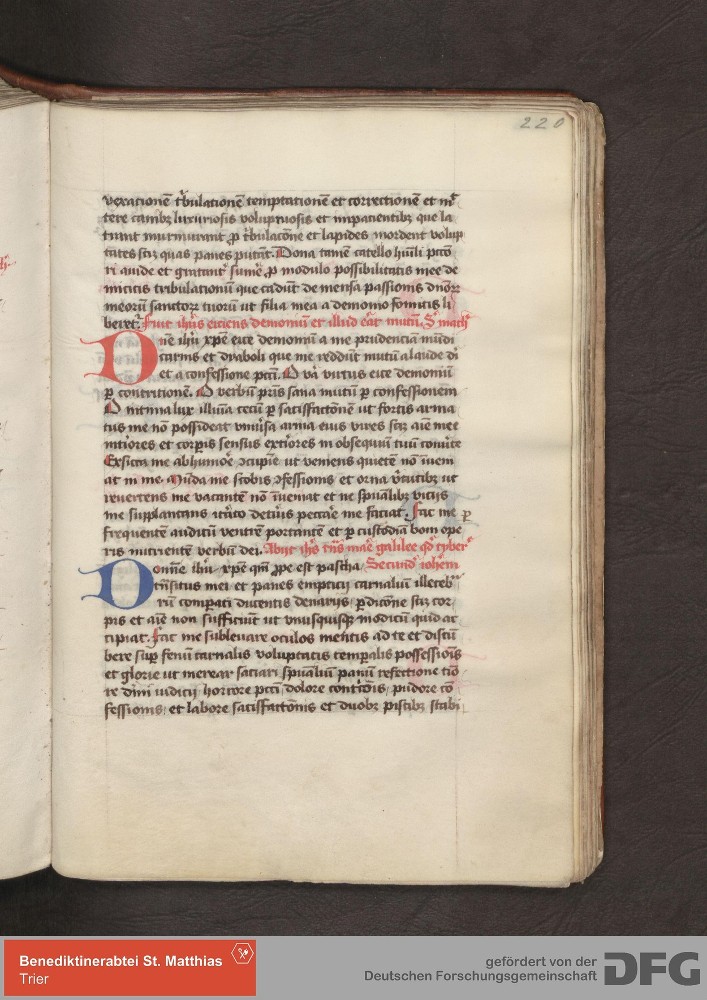 220
vexacionē t̄bulationē temptationē et correctionē et mi
tere canibꝫ luxuriosis voluptuosis et impatientibꝫ que la
trant murmurant ꝓ t̄bulacōne et lapides mordent volup
tates scꝫ quas panes putāt. Dona tamē catello hu̅ili pcc̄o
ri auide et gratant̄ sumē ꝓ modulo possibilitatis mee de
micis tribulationū que cadūt de mensa passionis dn̄orꝫ
meorū sanctorꝫ tuorū ut filia mea a demonio fornicis li
beret̄. Fuit ih̄us eiciens demoniū et illud erāt mutū.
Dn̄e ih̄u xp̄e eice demoniū a me prudenciā mūdi
carnis et dyaboli que me reddūt mutū a laude di
et a confessione pcc̄i. O vā virtus eice demoniū
ꝑ contritionē. O verbū pr̄is sana mutū ꝑ confessionem
O illumīa cecū ꝑ satisfactōnē ut fortis arma
tus me nō possideat vniūsa arma eius vires scꝫ aīe mee
intīores et corꝑis sensus extīores in obsequiū tuū conūte
Exsicca me ab humōe ↄcupīe ut veniens quietē nō inuēi
at in me. Mūda me scobis ↄfessionis et orna v̄tutibꝫ ut
reuertens me vacantē nō inueniat et ne spūalibꝫ vicijs
me supplantans iterāto deteriꝰ peccāe me faciat. Fac me ꝑ
frequentē auditū ventrē portantē et ꝑ custodiā boni ope
ris nutrientē verbū dei. Abijt ih̄s trās maē galilee qđ tyber
Domīe ih̄u xp̄e qm̄ ꝓpe est pascha Secund̄ ioh̄em
trāsitus mei et panes empticij carnaliū illeceb
rū comꝑati ducentis denarijs ꝑdicōne scꝫ cor
pis et aīe non sufficiūt ut vnusquisqꝫ modicū quid ac
cipiat. Fac me subleuare oculos mentis ad te et discū
bere suꝑ fenū carnalis voluptatis temꝑalis possessiōis
et glorie ut merear saciari spūaliū panū refectione
re diuīi iudicij horrore pcc̄i dolore contricōis pudore cō
fessionis et labore satisfactōnis et duobꝫ piscibꝫ stabi
Benediktinerabtei St. Matthias
Trier
gefördert von der
Deutschen Forschungsgemeinschaft DFG